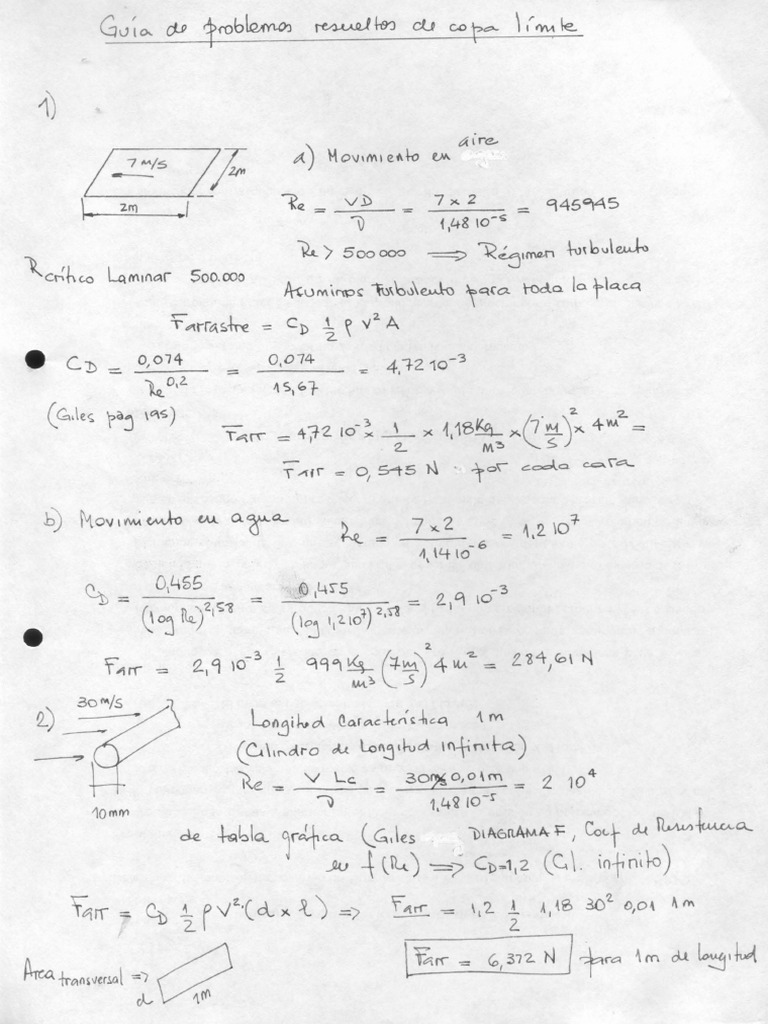 Guía de problemas resueltos de capa límite
1)
7 m/s
2m
2m
a) Movimiento en aire
Re = VD/ν = 7 x 2 / 1,48 10⁻⁵ = 945945
Re > 500000 ⟹ Régimen turbulento
Rcrítico Laminar 500.000
Asumimos Turbulento para toda la placa
Farrastre = CD 1/2 ρ V² A
CD = 0,074 / Re^0,2 = 0,074 / 15,67 = 4,72 10⁻³
(Giles pag 195)
Farr = 4,72 10⁻³ x 1/2 x 1,18 Kg/m³ x (7 m/s)² x 4 m² =
Farr = 0,545 N por cada cara
b) Movimiento en agua
Re = 7 x 2 / 1,14 10⁻⁶ = 1,2 10⁷
CD = 0,455 / (log Re)^2,58 = 0,455 / (log 1,2 10⁷)^2,58 = 2,9 10⁻³
Farr = 2,9 10⁻³ 1/2 999 Kg/m³ (7m/s)² 4 m² = 284,61 N
2)
30 m/s
10 mm
Longitud Característica 1m
(Cilindro de Longitud infinita)
Re = V Lc / ν = 30 m/s 0,01m / 1,48 10⁻⁵ = 2 10⁴
de tabla gráfica (Giles DIAGRAMA F, Coef de Resistencia
en f(Re) ⟹ CD=1,2 (Cil. infinito)
Farr = CD 1/2 ρ V² · (d x l) ⟹ Farr = 1,2 1/2 1,18 30² 0,01 1m
Farr = 6,372 N para 1m de longitud
Area transversal ⟹
d
1m